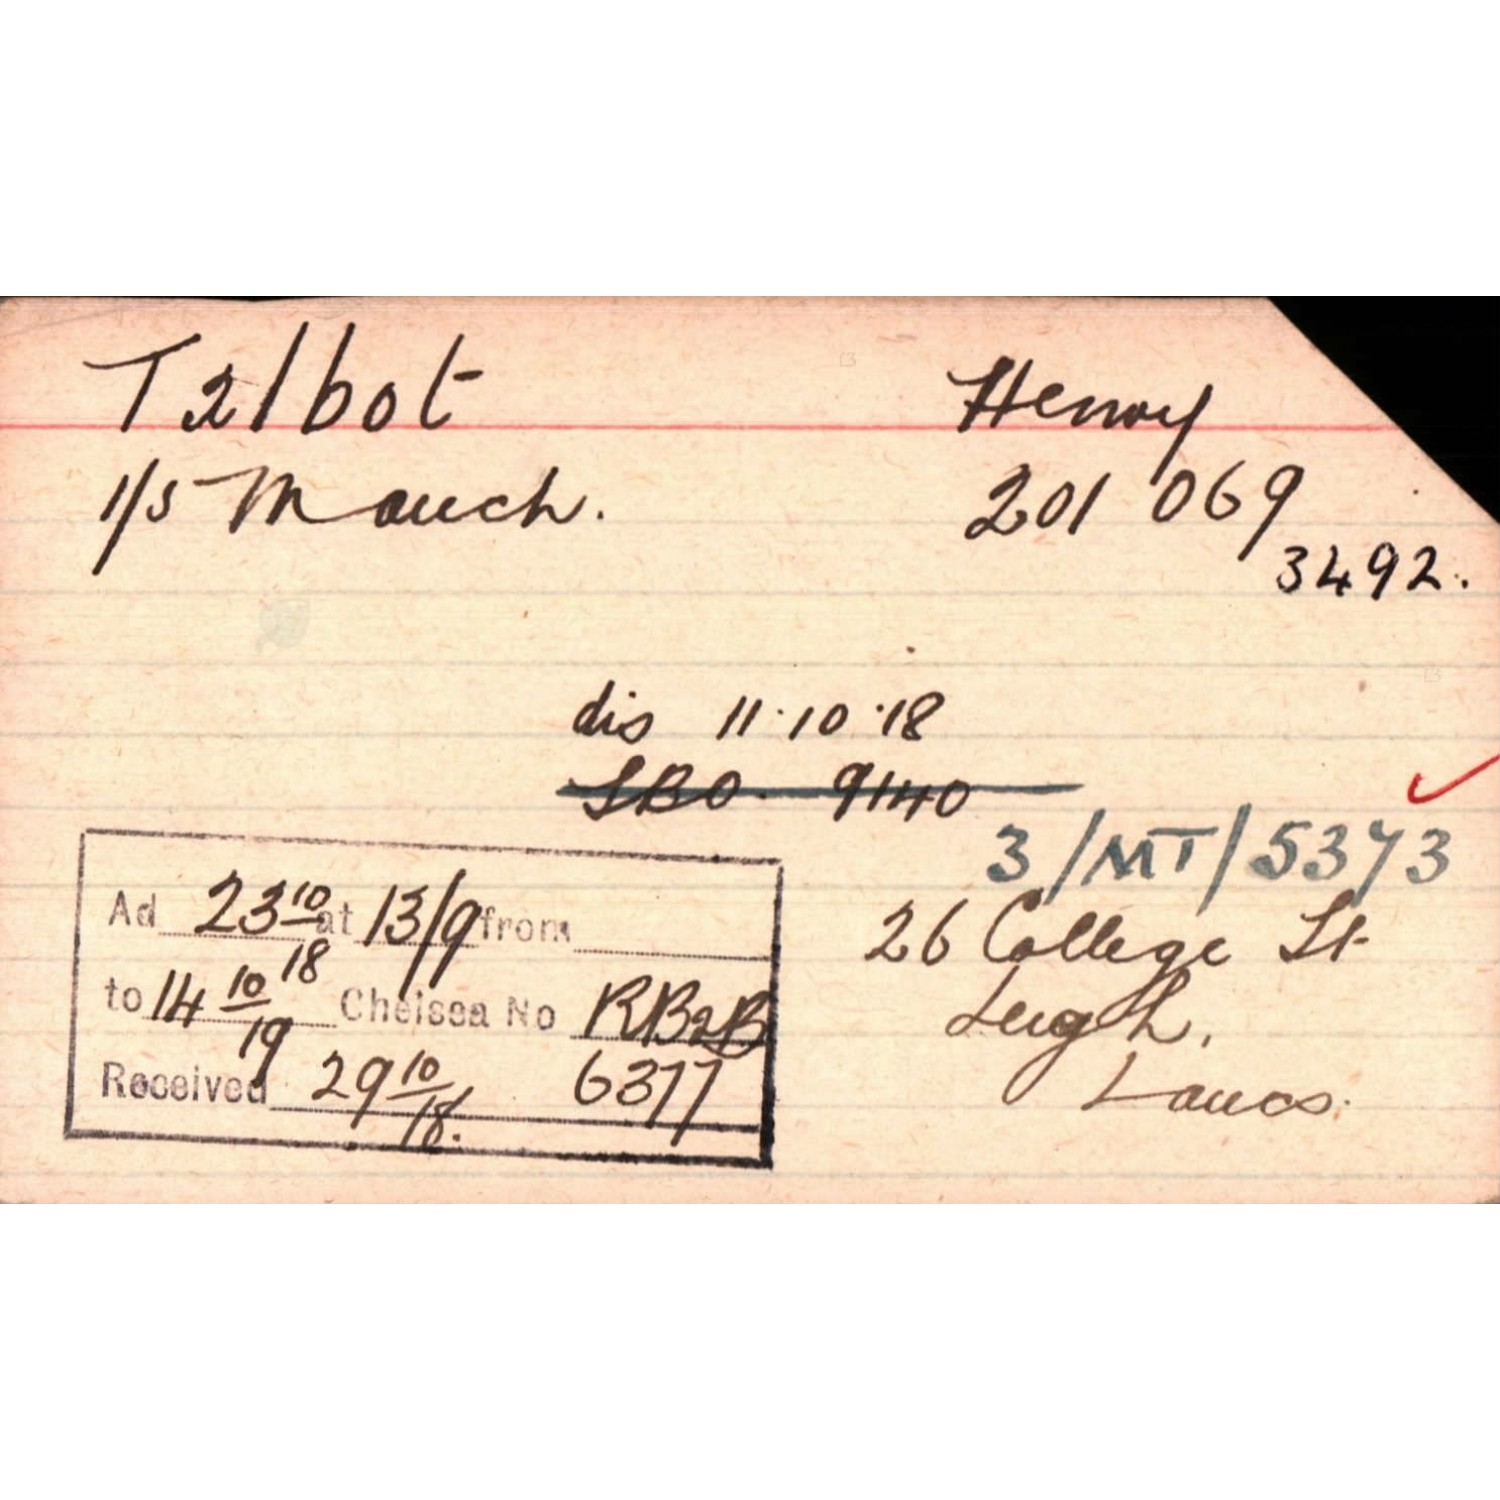 Talbot Henry
1/5 Manch. 201 069
3492.
dis 11.10.18
SBO. 9140
3/MT/5373
Ad 23 10/18 at 13/9 from
to 14 10/19 Chelsea No RB2B
Received 29 10/18. 6377
26 College St
Leigh.
Lancs.